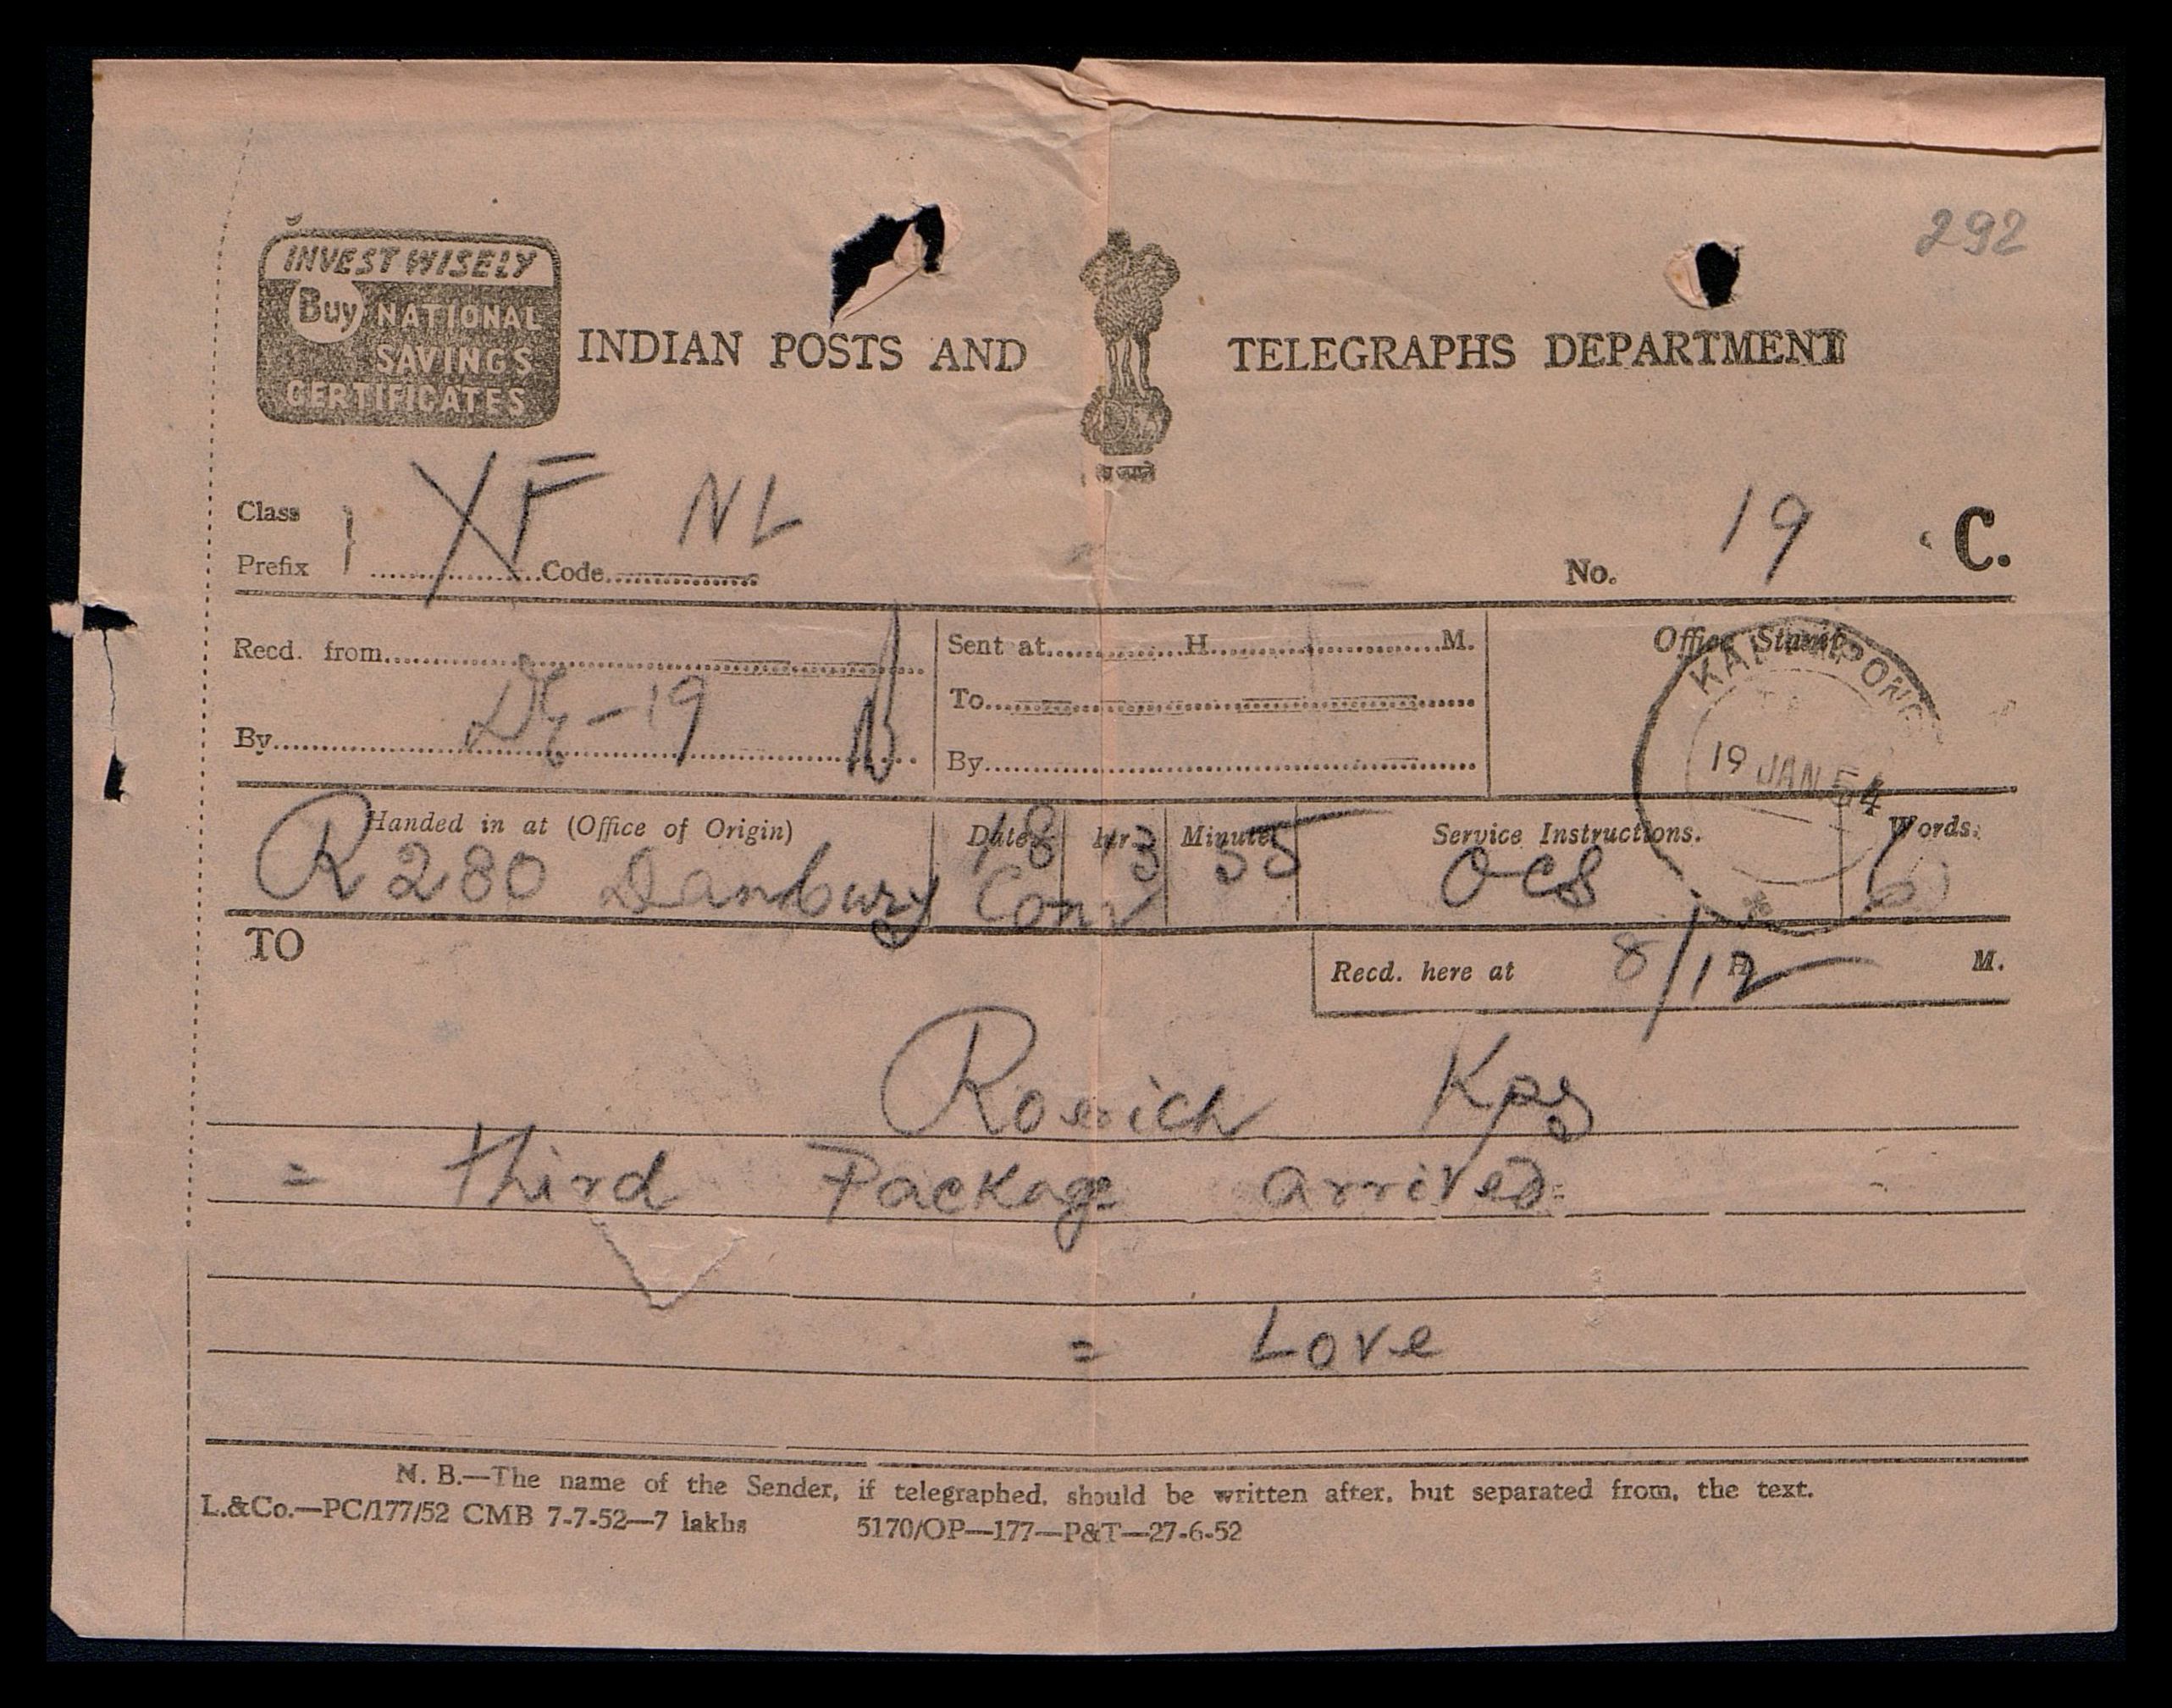 292
INVEST WISELY
Buy NATIONAL
SAVINGS
CERTIFICATES
INDIAN POSTS AND TELEGRAPHS DEPARTMENT
Class
Prefix
XF Code NL
No. 19 C.
Recd. from
By
Sent at H. M.
To
By
Office Stamp
KALIMPONG
19 JAN. 54
Handed in at (Office of Origin) Date Hr. Minute Service Instructions. Words.
R 280 Danbury Conn 18 13 55 OCS
TO
Recd. here at 8/12 H. M.
Roerich Kpg
= third Package arrived =
= Love
N. B.—The name of the Sender, if telegraphed, should be written after, but separated from, the text.
L.&Co.—PC/177/52 CMB 7-7-52—7 lakhs 5170/OP—177—P&T—27-6-52